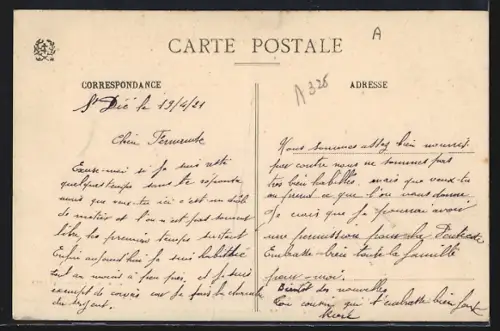 A
CARTE POSTALE
A 328
CORRESPONDANCE
St Dié le 19/4/21
Chère Fernande
Excuse-moi si je suis resté
quelques temps sans te répondre
mais que veux-tu ici c'est un drôle
de métier et l'on n'est pas souvent
libre les premiers temps surtout
Enfin aujourd'hui je suis habillé
tout au moins à peu près, et je suis
exempt de corvée car je fais la chambre
du sergent.
ADRESSE
Nous sommes assez bien nourris
par contre nous ne sommes pas
très bien habillés, mais que veux-tu
on prend ce que l'on vous donne
Je crois que je pourrai avoir
une permission pour la Pentecôte
Embrasse bien toute la famille
pour moi.
Bientôt des nouvelles
Ton cousin qui t'embrasse bien fort